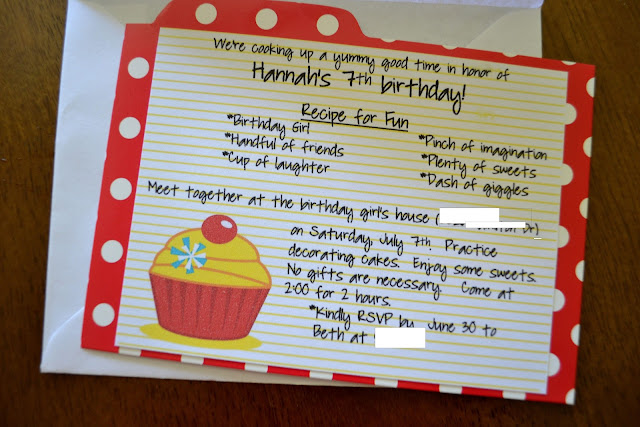 We're cooking up a yummy good time in honor of
Hannah's 7th birthday!
Recipe for Fun
*Birthday Girl
*Handful of friends
*Cup of laughter
*Pinch of imagination
*Plenty of sweets
*Dash of giggles
Meet together at the birthday girl's house (
Dr)
on Saturday, July 7th. Practice
decorating cakes. Enjoy some sweets.
No gifts are necessary. Come at
2:00 for 2 hours.
*Kindly RSVP by June 30 to
Beth at